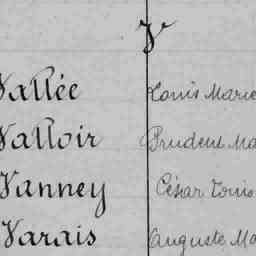 V
Vallée Louis Marie
Valloir Prudent Ma
Vanney César Louis
Varais Auguste Ma